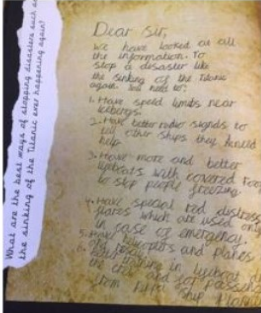 What are the best ways of stopping disasters such as
the sinking of the Titanic ever happening again?
Dear Sir,
We have looked at all
the information. To
stop a disaster like
the sinking of the Titanic
again we need to:
1. Have speed limits near
icebergs.
2. Have better radio signals to
tell other ships they
help
3. Have more and better
lifeboats with covered
to stop people freezing.
4. Have special red distress
flares which are used only
in case of emergency.
5. and planes
6. training in lifeboat
the crew and for
from ship